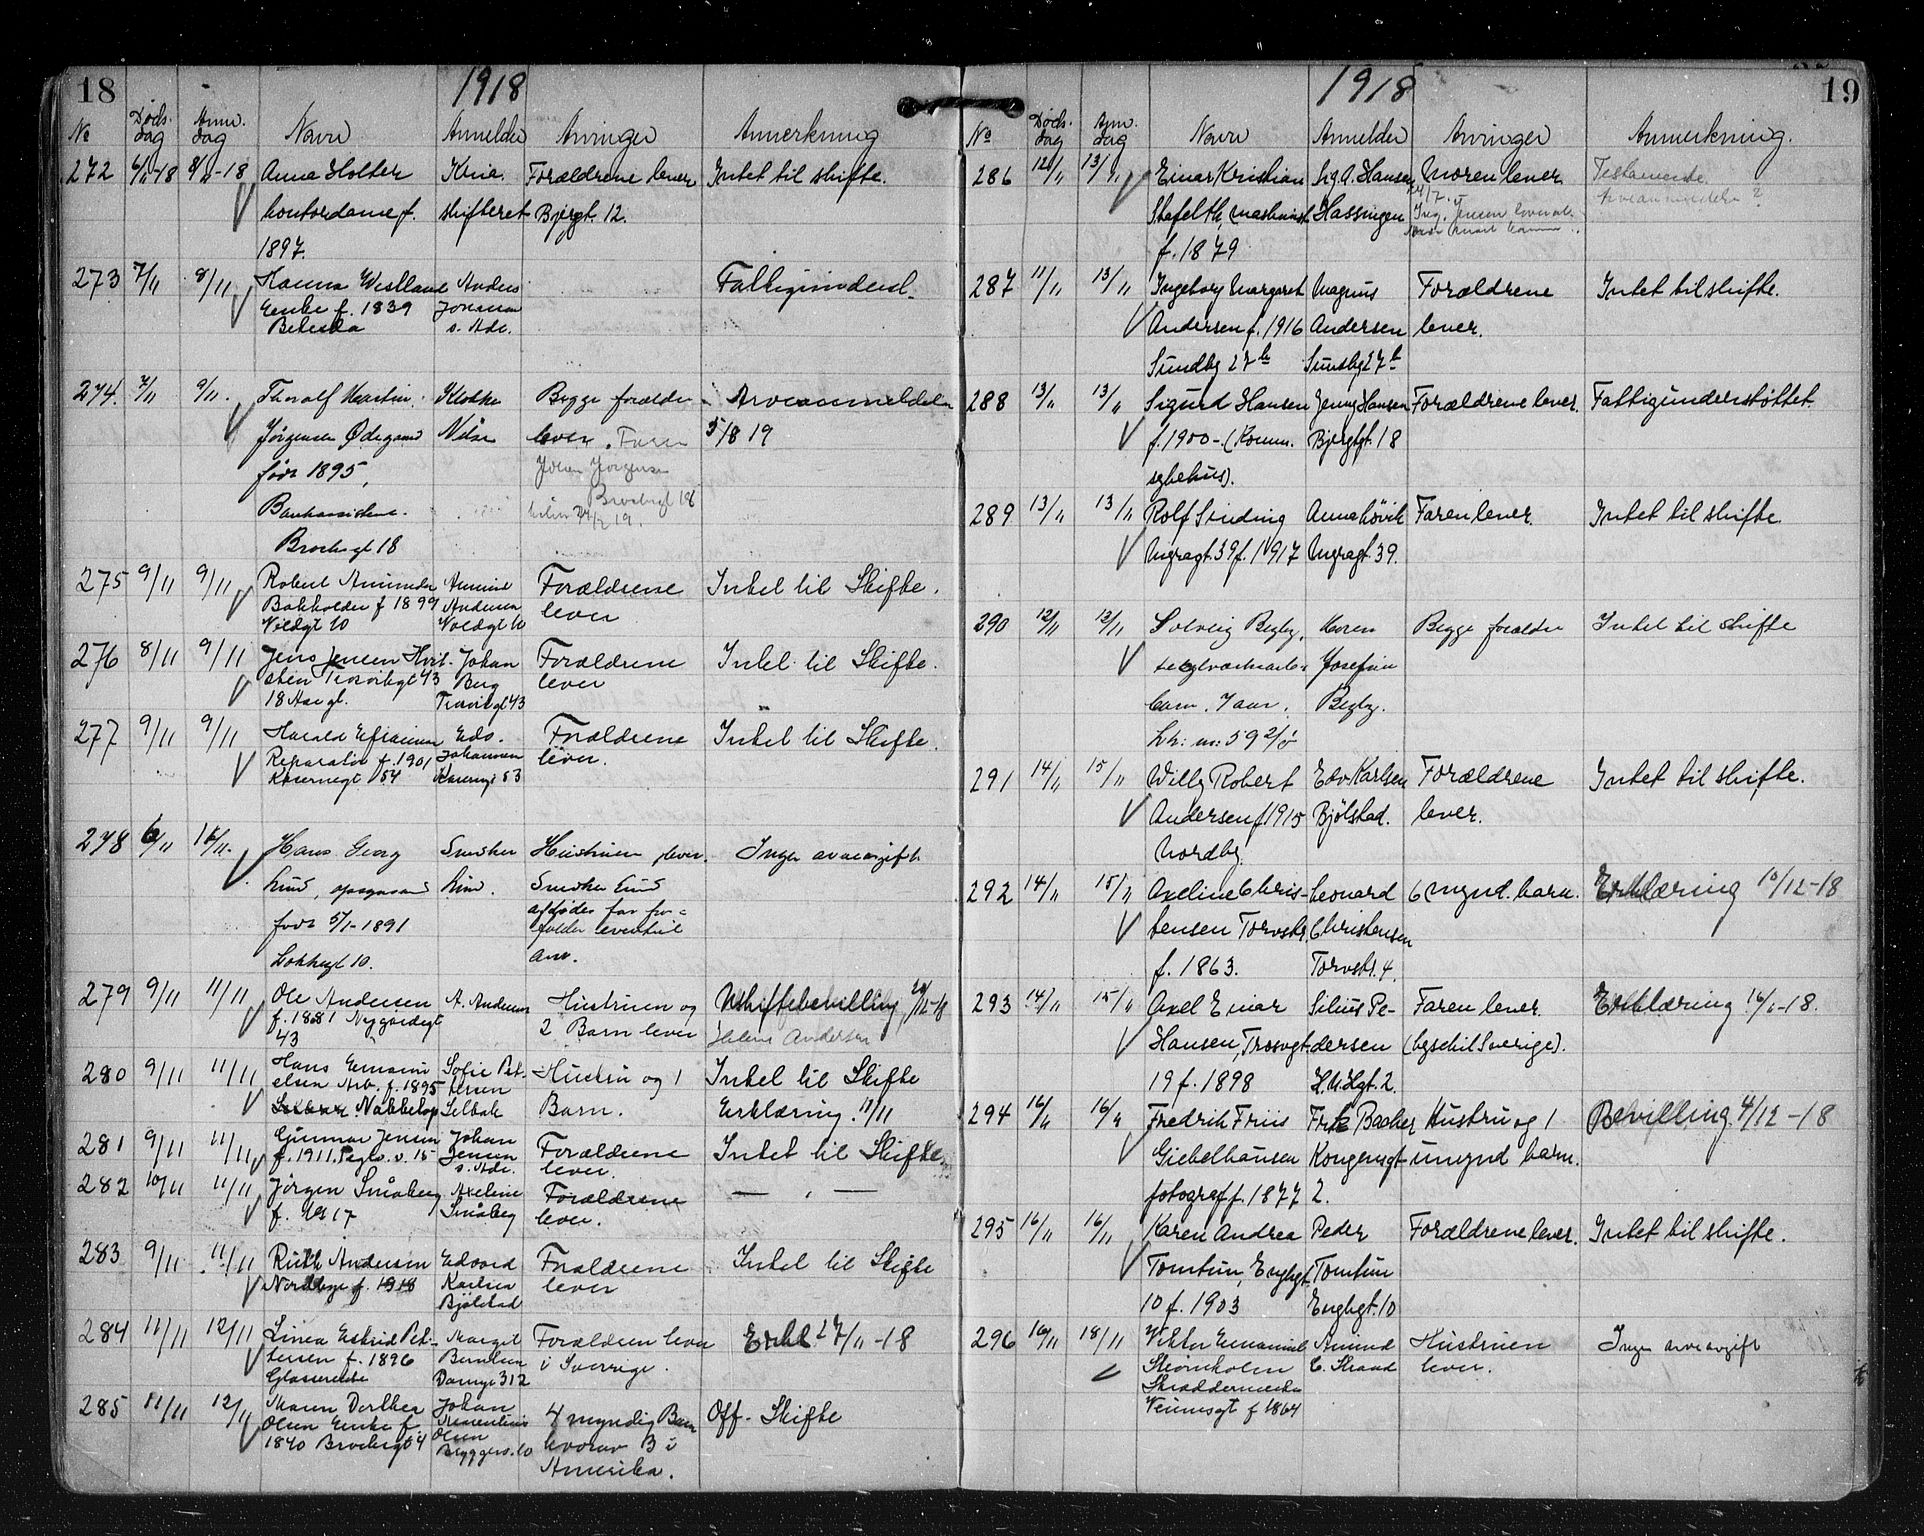 18
1918
№ Døds- dag Anm. dag Navn Anmelder Arvinger Anmerkning
272 6/11-18 8/11-18 Anna Holter Kria. Forældrene lever Intet til skifte.
kontordame f. skifteret Bjergt. 12.
1897.
273 7/11 8/11 Hanna Westlund Anders Fattigunderst.
Enke f. 1839 Johansen
Betesda s. Ade.
274. 7/11 9/11. Thoralf Martin Klokker Begge forældre Arveanmeldelse
Jørgensen Ødegaard Nilsen lever. Faren 5/8 19
født 1895, Johan Jørgensen
Bankassistent. Brochsgt 18
Brochsgt 18
275 9/11 9/11 Robert Amundsen Forældrene Intet til Skifte.
Bokholder f 1899 Andersen lever
Voldgt 10 Voldgt 10
276 8/11 9/11 Jens Jensen Hvit- Johan Forældrene Intet til Skifte.
sten Trosvikgt 43 Berg lever
18 Aar gl. Trosvikgt 43
277 9/11 9/11 Harald Efraimsen Edv. Forældrene Intet til Skifte.
Reparatør f. 1901 Johannesen lever.
Kasernegt 54 Kasernegt 53
278 6/11 16/11. Hans Georg Snedker Hustruen lever. Ingen arveavgift
Lund, opsynsmand Lund. Snedker Lund
født 5/1-1891 avdødes far for-
Lokkegt 10. holder eventuel
arv.
279 9/11 11/11 Ole Andersen A. Andersen Hustruen og Uskiftebevilling 24/12-18
f. 1881 Nygaardsgt 2 Barn lever Helene Andersen
43
280 9/11 11/11 Hans Emanu- Sofie Pet- Hustru og 1 Intet til Skifte
elsen Arb. f. 1895 tersen Barn. Erklæring. 11/11
Nabbetorp Selbak
281 9/11 11/11 Gunnar Jensen Johan Forældrene Intet til Skifte
f. 1911. Teglv. v. 15 Jensen lever.
s. Ade.
282 10/11 11/11 Jørgen Småberg Axeline Forældrene — „ —
f. 1917 Småberg lever.
283 9/11 11/11 Ruth Andersen Edvard Forældrene Intet til Skifte
Nordbye f. 1918 Karlsen lever
Bjølstad
284 11/11 12/11 Linea Estrid Pet- Margit Forældren lever Erkl 27/11-18
tersen f. 1896 Berntsen i Sverrige.
Glassereide Damgt 312
285 11/11 12/11 Maren Dorthea Johan 4 myndig Barn Off. Skifte
Olsen Enke f. Olsen hvorav 3 i
1840 Brochsgt 4 Bryggeriv. 10 Amerika.
19
1918
№ Døds- dag Anm. dag Navn Anmelder Arvinger Anmerkning.
286 12/11 13/11 Einar Kristian Ing. A. Hansen Moren lever Testamente
Skofelth, maskinist Hassingen Arveanmeldelse ?
f. 1879
287 11/11 13/11 Ingeborg Margaret Magnus Forældrene Intet til skifte.
Andersen f. 1916 Andersen lever.
Sundbg 27b Sundbg 27b
288 13/11 13/11 Sigurd Hansen Jenny Hansen Forældrene lever. Fattigunderstøttet.
f. 1900 - (Komm. Bjergt. 18
sykehus).
289 13/11 13/11 Rolf Sinding Anna Høvik Faren lever. Intet til skifte.
Myragt. 39 f. 1917 Myragt. 39.
290 12/11 13/11 Solveig Begby, Karen Begge forældre Intet til skifte
teglverksarb.s Josefine
barn. 7 aar. Begby.
Lh: nr: 59 2/8
291 14/11 15/11 Willy Robert Edv. Karlsen Forældrene Intet til skifte.
Andersen f 1915 Bjølstad. lever.
Nordby.
292 14/11 15/11 Axeline Chris- Leonard 6 mynd. barn. Erklæring 10/12-18
tensen Torvstr. Christensen
f. 1863. Torvstr. 4.
293 14/11 15/11 Axel Einar Silius Pe- Faren lever. Erklæring 16/11-18.
Hansen, Trosvgt. dersen (bosat i Sverige).
19 f. 1898 H.N.Hgt. 2.
294 16/11 16/11 Fredrik Friis Frk Backer Hustru og 1 Bevilling 4/12-18
Giebelhausen Kongensgt umynd barn.
fotograf f. 1877 2.
295 16/11 16/11 Karen Andrea Peder Forældrene lever. Intet til skifte.
Tomtun, Enghgt. Tomtun
10 f. 1903 Enghgt. 10
296 16/11 18/11 Viktor Emanuel Amund Hustruen Ingen arveavgift
Strömholm C. Strand lever.
Skræddermester
Veumsgt f 1864